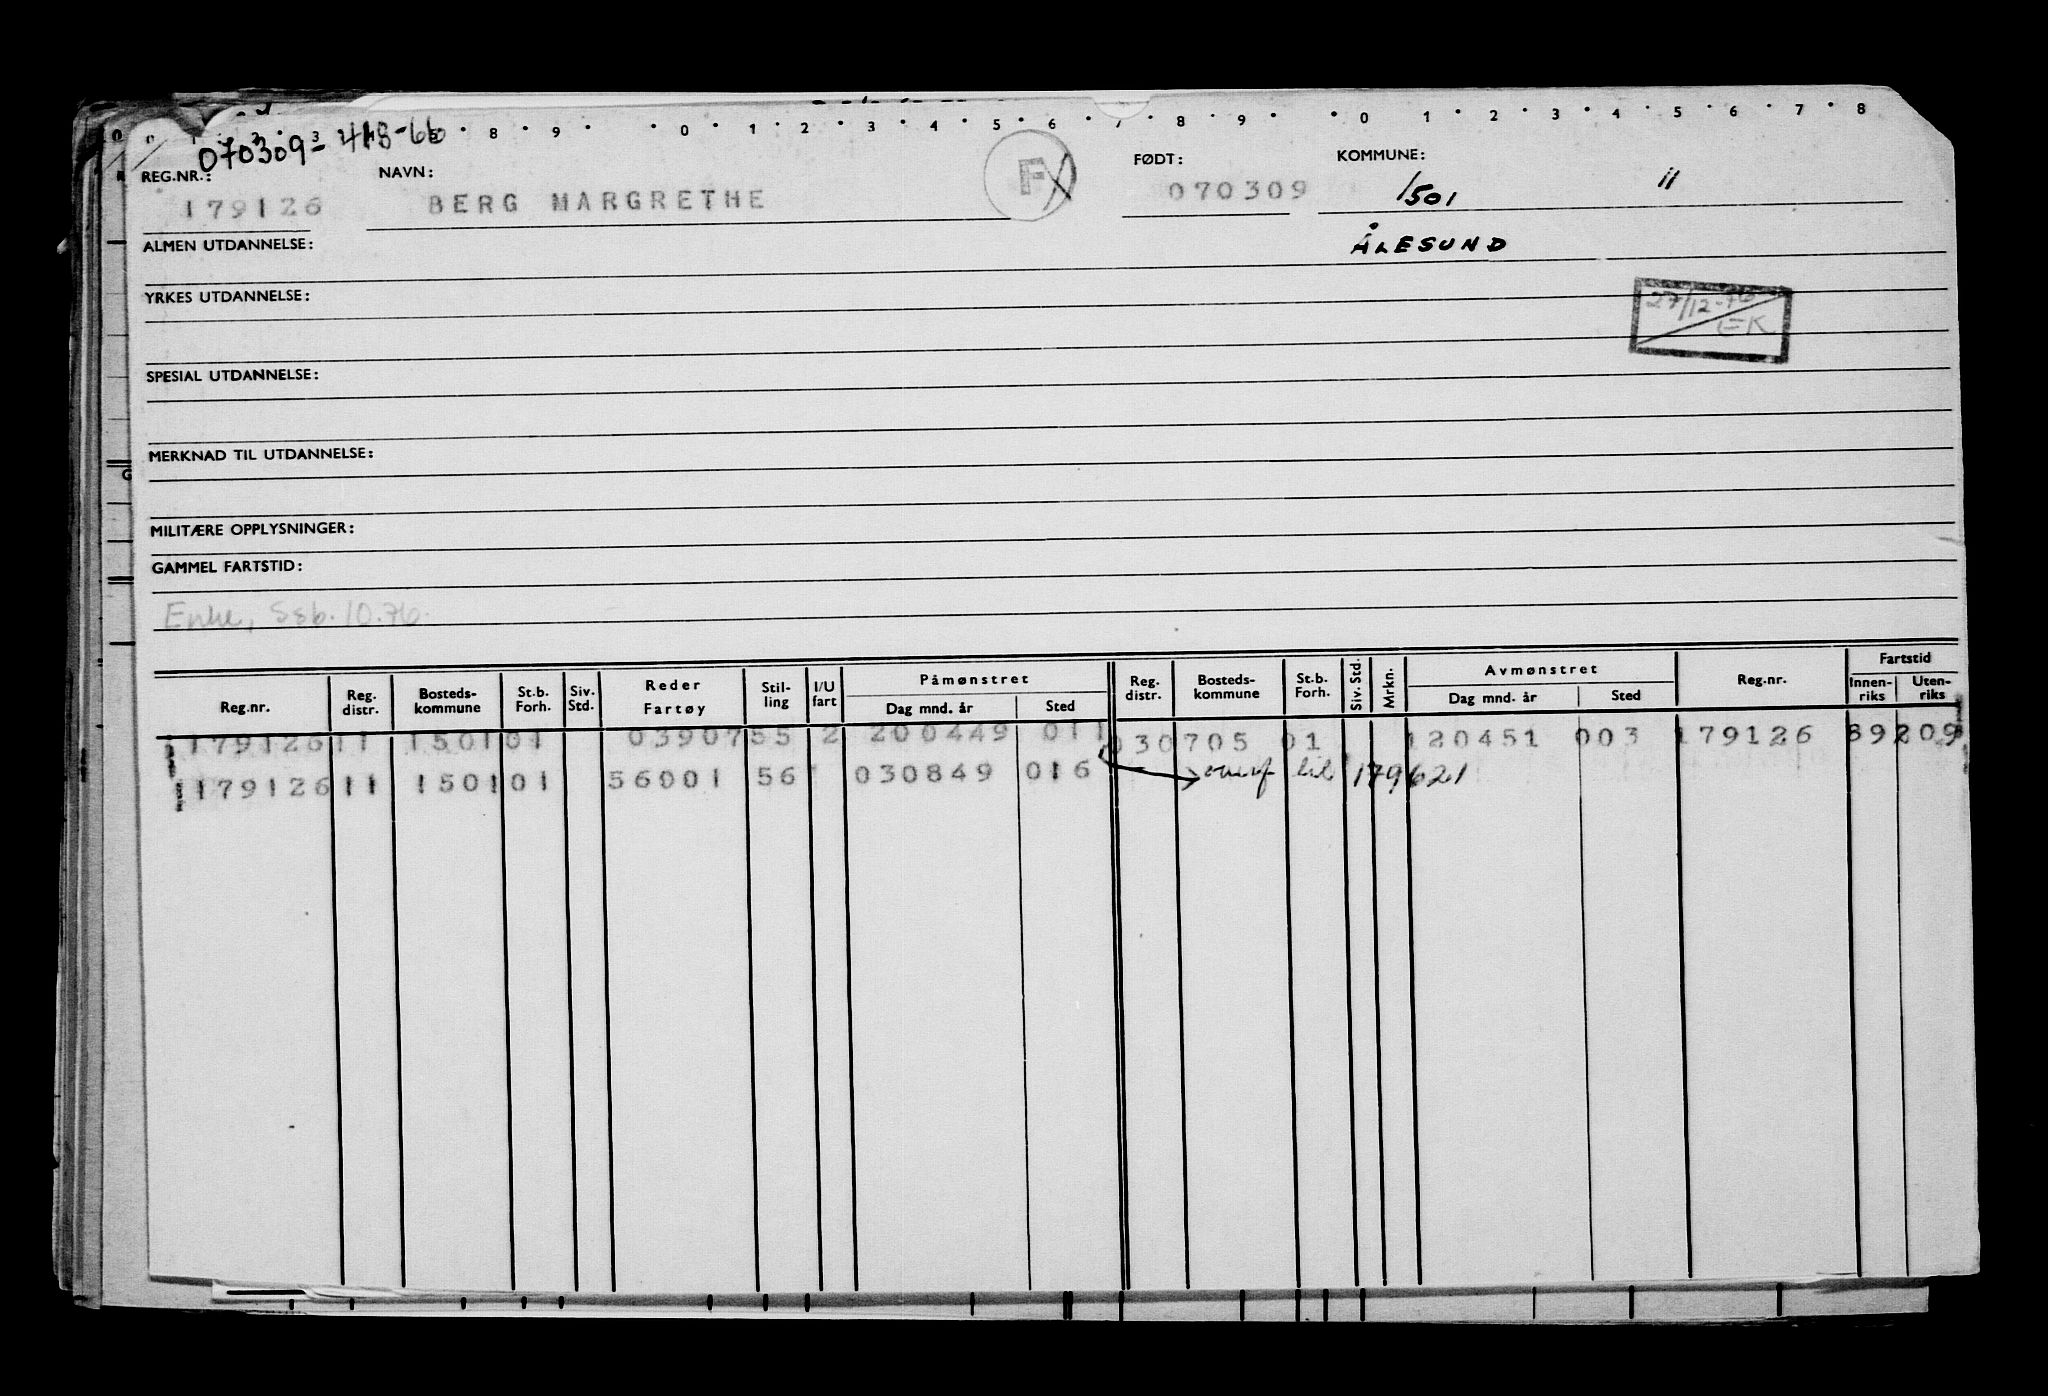 070309 - 418-66
REG.NR.: NAVN: F FØDT: KOMMUNE:
179126 BERG MARGRETHE 070309 1501 11
ALMEN UTDANNELSE: ÅLESUND
YRKES UTDANNELSE:
27/12-76
EK
SPESIAL UTDANNELSE:
MERKNAD TIL UTDANNELSE:
MILITÆRE OPPLYSNINGER:
GAMMEL FARTSTID:
Enke, Seb. 10.76.
Reg.nr. Reg. distr. Bosteds- kommune St.b. Forh. Siv. Std. Reder Fartøy Stil- ling I/U fart Påmønstret Dag mnd. år Sted Reg. distr. Bosteds- kommune St.b. Forh. Siv. Std. Mrkn. Avmønstret Dag mnd. år Sted Reg.nr. Fartstid Innen- riks Uten- riks
179126 11 1501 01 03907 55 2 200449 011 030705 01 120451 003 179126 89209
179126 11 1501 01 56001 56 030849 016 til 179621